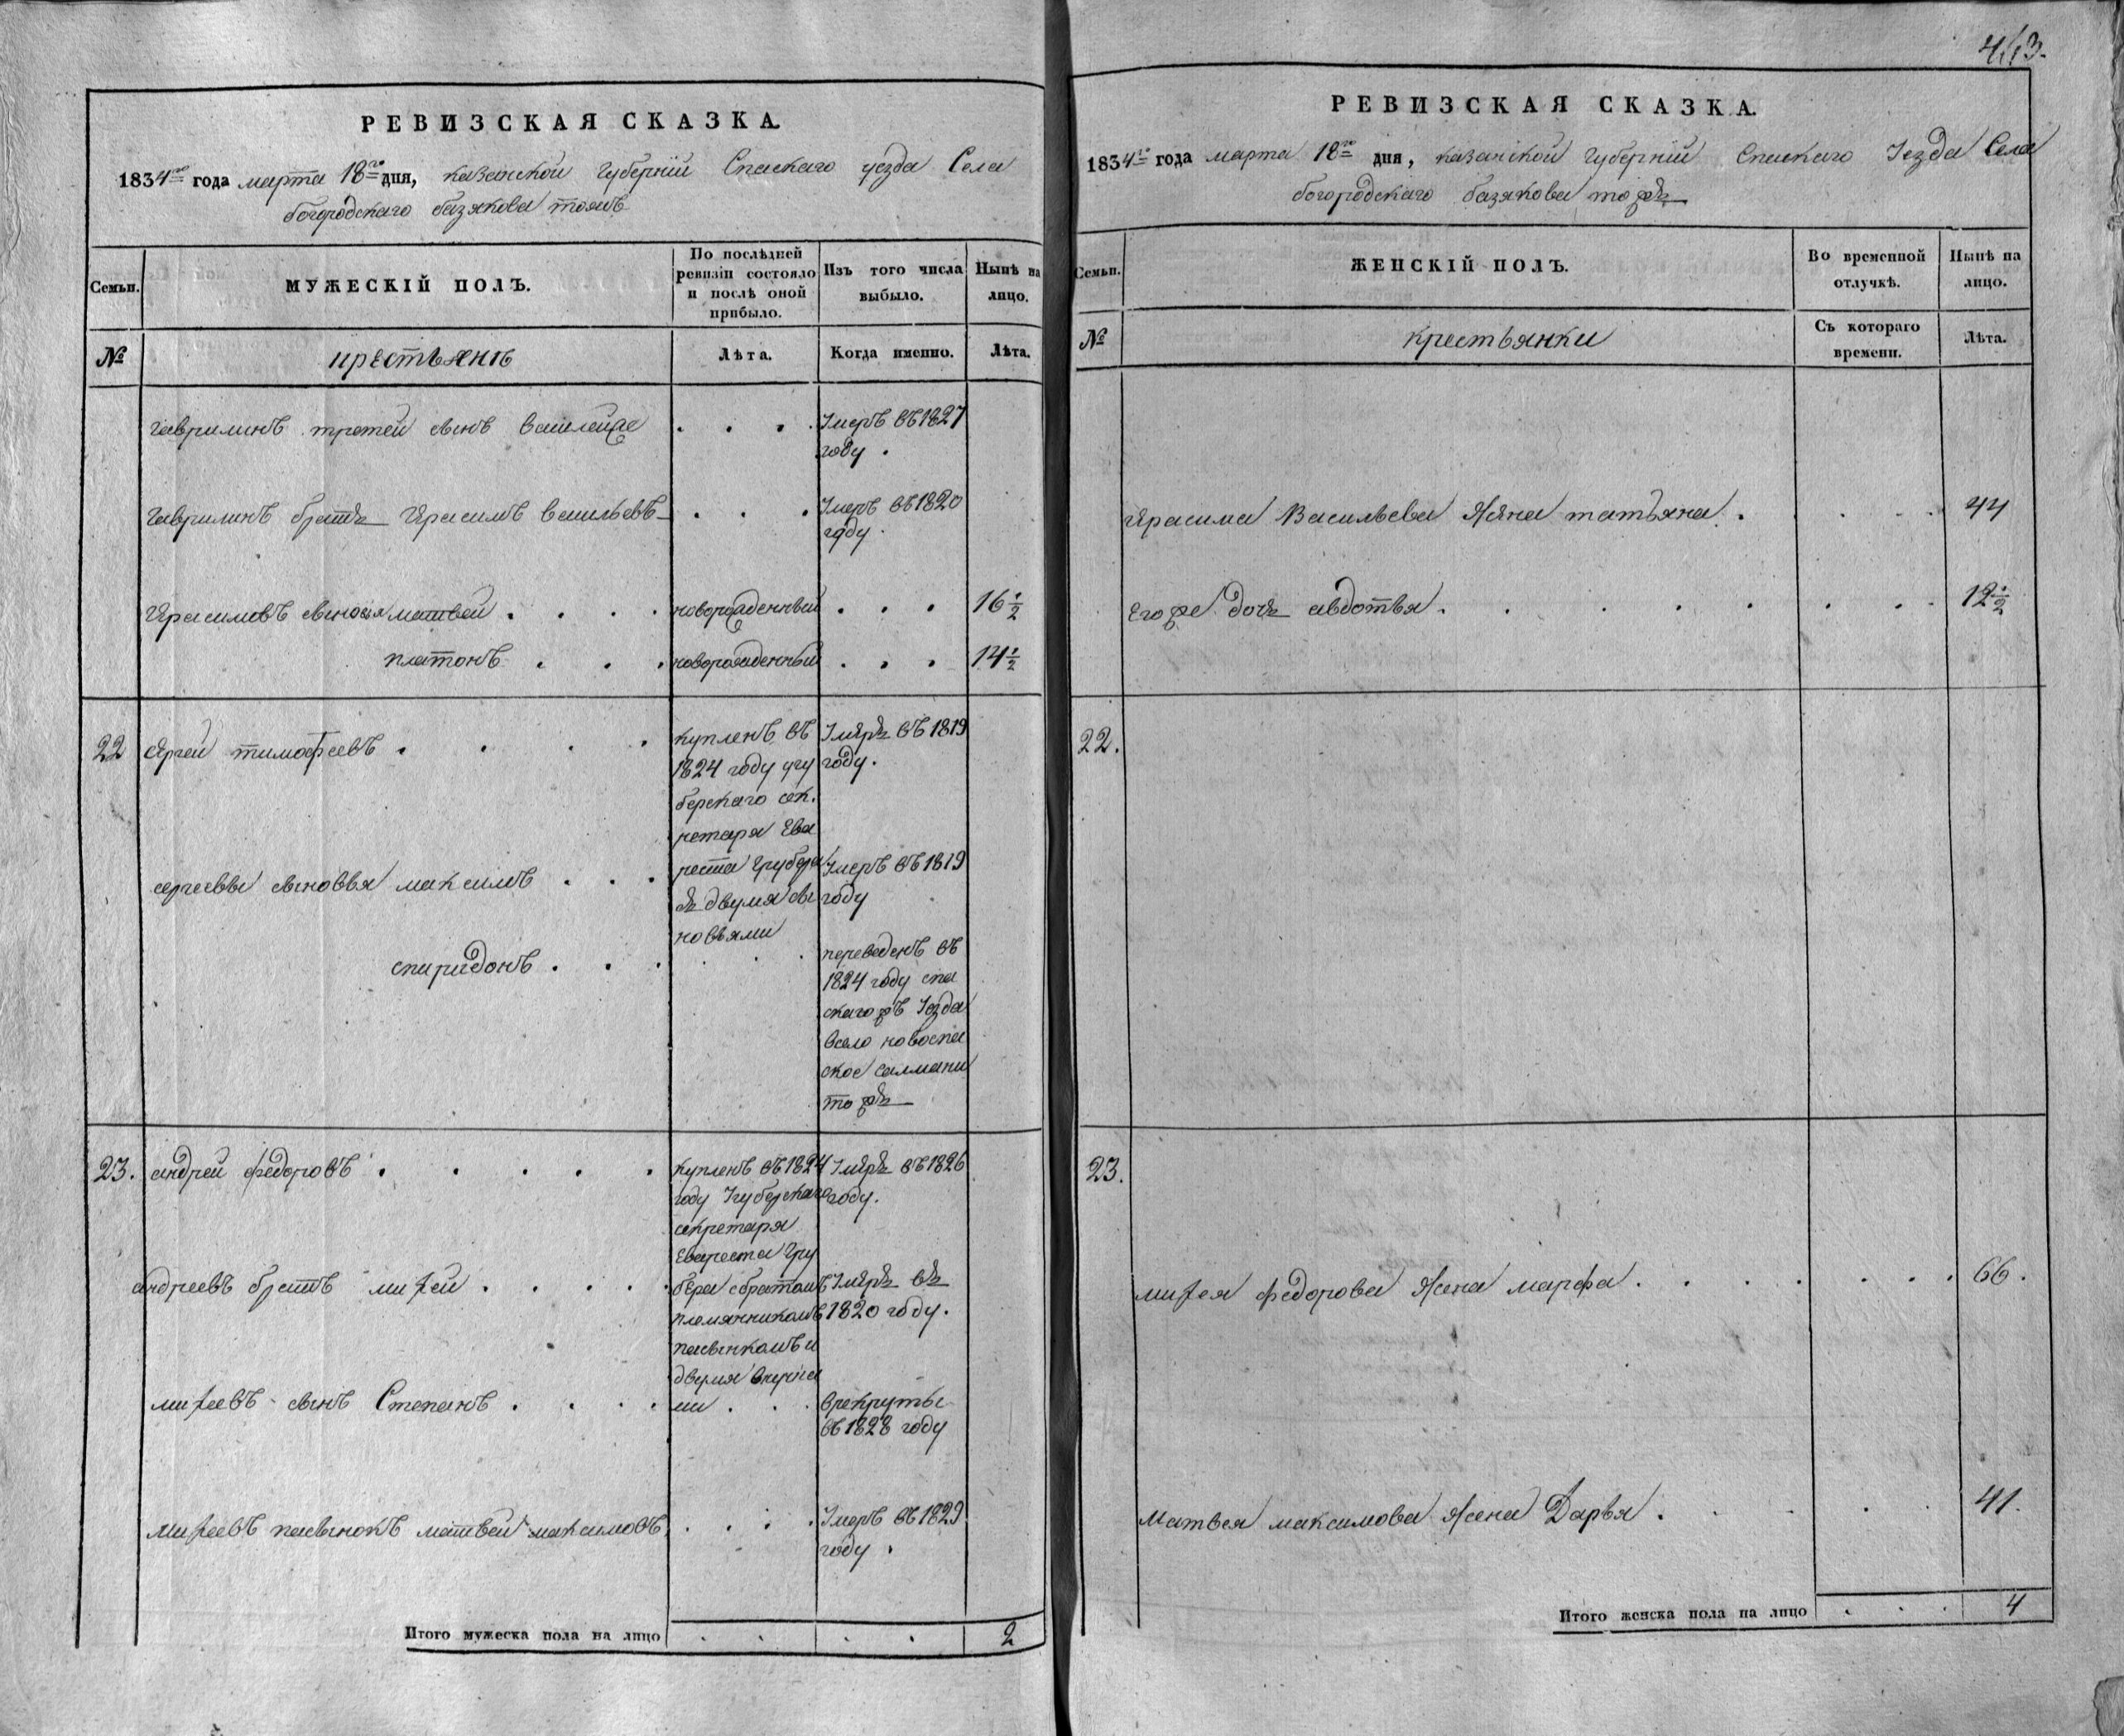 РЕВИЗСКАЯ СКАЗКА.
1834го года марта 18го дня, казанской губерніи Спаскаго уезда Села
богородскаго базякова тожъ
Семьи.
МУЖЕСКІЙ ПОЛЪ.
По послѣдней
ревизіи состояло
и послѣ оной
прибыло.
Изъ того числа
выбыло.
Нынѣ на
лицо.
№
крестьянѣ
Лѣта.
Когда именно.
Лѣта.
гаврилинъ третей сынъ
Умеръ въ 1827
году.
гаврилинъ братъ герасимъ васильевъ
Умеръ въ 1820
году.
герасимовъ сыновья матвей
новорожденный
16 ½
платонъ
новорожденный
14 ½
22
сергей тимофеевъ
купленъ въ
1824 году у гу
берскаго сек.
ретаря Ева
реста Грубера
съ двумя сы
новьями
Умеръ въ 1819
году.
сергеевы сыновья максимъ
Умеръ въ 1819
году
спиридонъ
переведенъ въ
1824 году спа
скаго жъ Уезда
всело новоспа
ское салманы
тожъ
23.
андрей федоровъ
купленъ въ 1824
году Угуберскаго
секретаря
Евареста Гру
бера сбратомъ
племянникомъ
пасынкомъ и
двумя внучка
ми
Умеръ въ 1826
году.
андреевъ братъ михей
Умеръ въ
1820 году.
михеевъ сынъ Степанъ
врекруты
въ 1828 году
михеевъ пасынокъ матвей максимовъ
Умеръ въ 1829
году.
Итого мужеска пола на лицо
2
443.
РЕВИЗСКАЯ СКАЗКА.
1834го года марта 18го дня, казанской губерніи Спаскаго Уезда Села
богородскаго базякова тожъ
Семьи.
ЖЕНСКІЙ ПОЛЪ.
Во временной
отлучкѣ.
Нынѣ на
лицо.
№
крестьянки
Съ котораго
времени.
Лѣта.
герасима Васильева Жена татьяна.
44
Его же дочь авдотья.
12 ½
22.
23.
михея федорова Жена марфа.
66.
Матвея максимова Жена Дарья.
41.
Итого женска пола на лицо
4